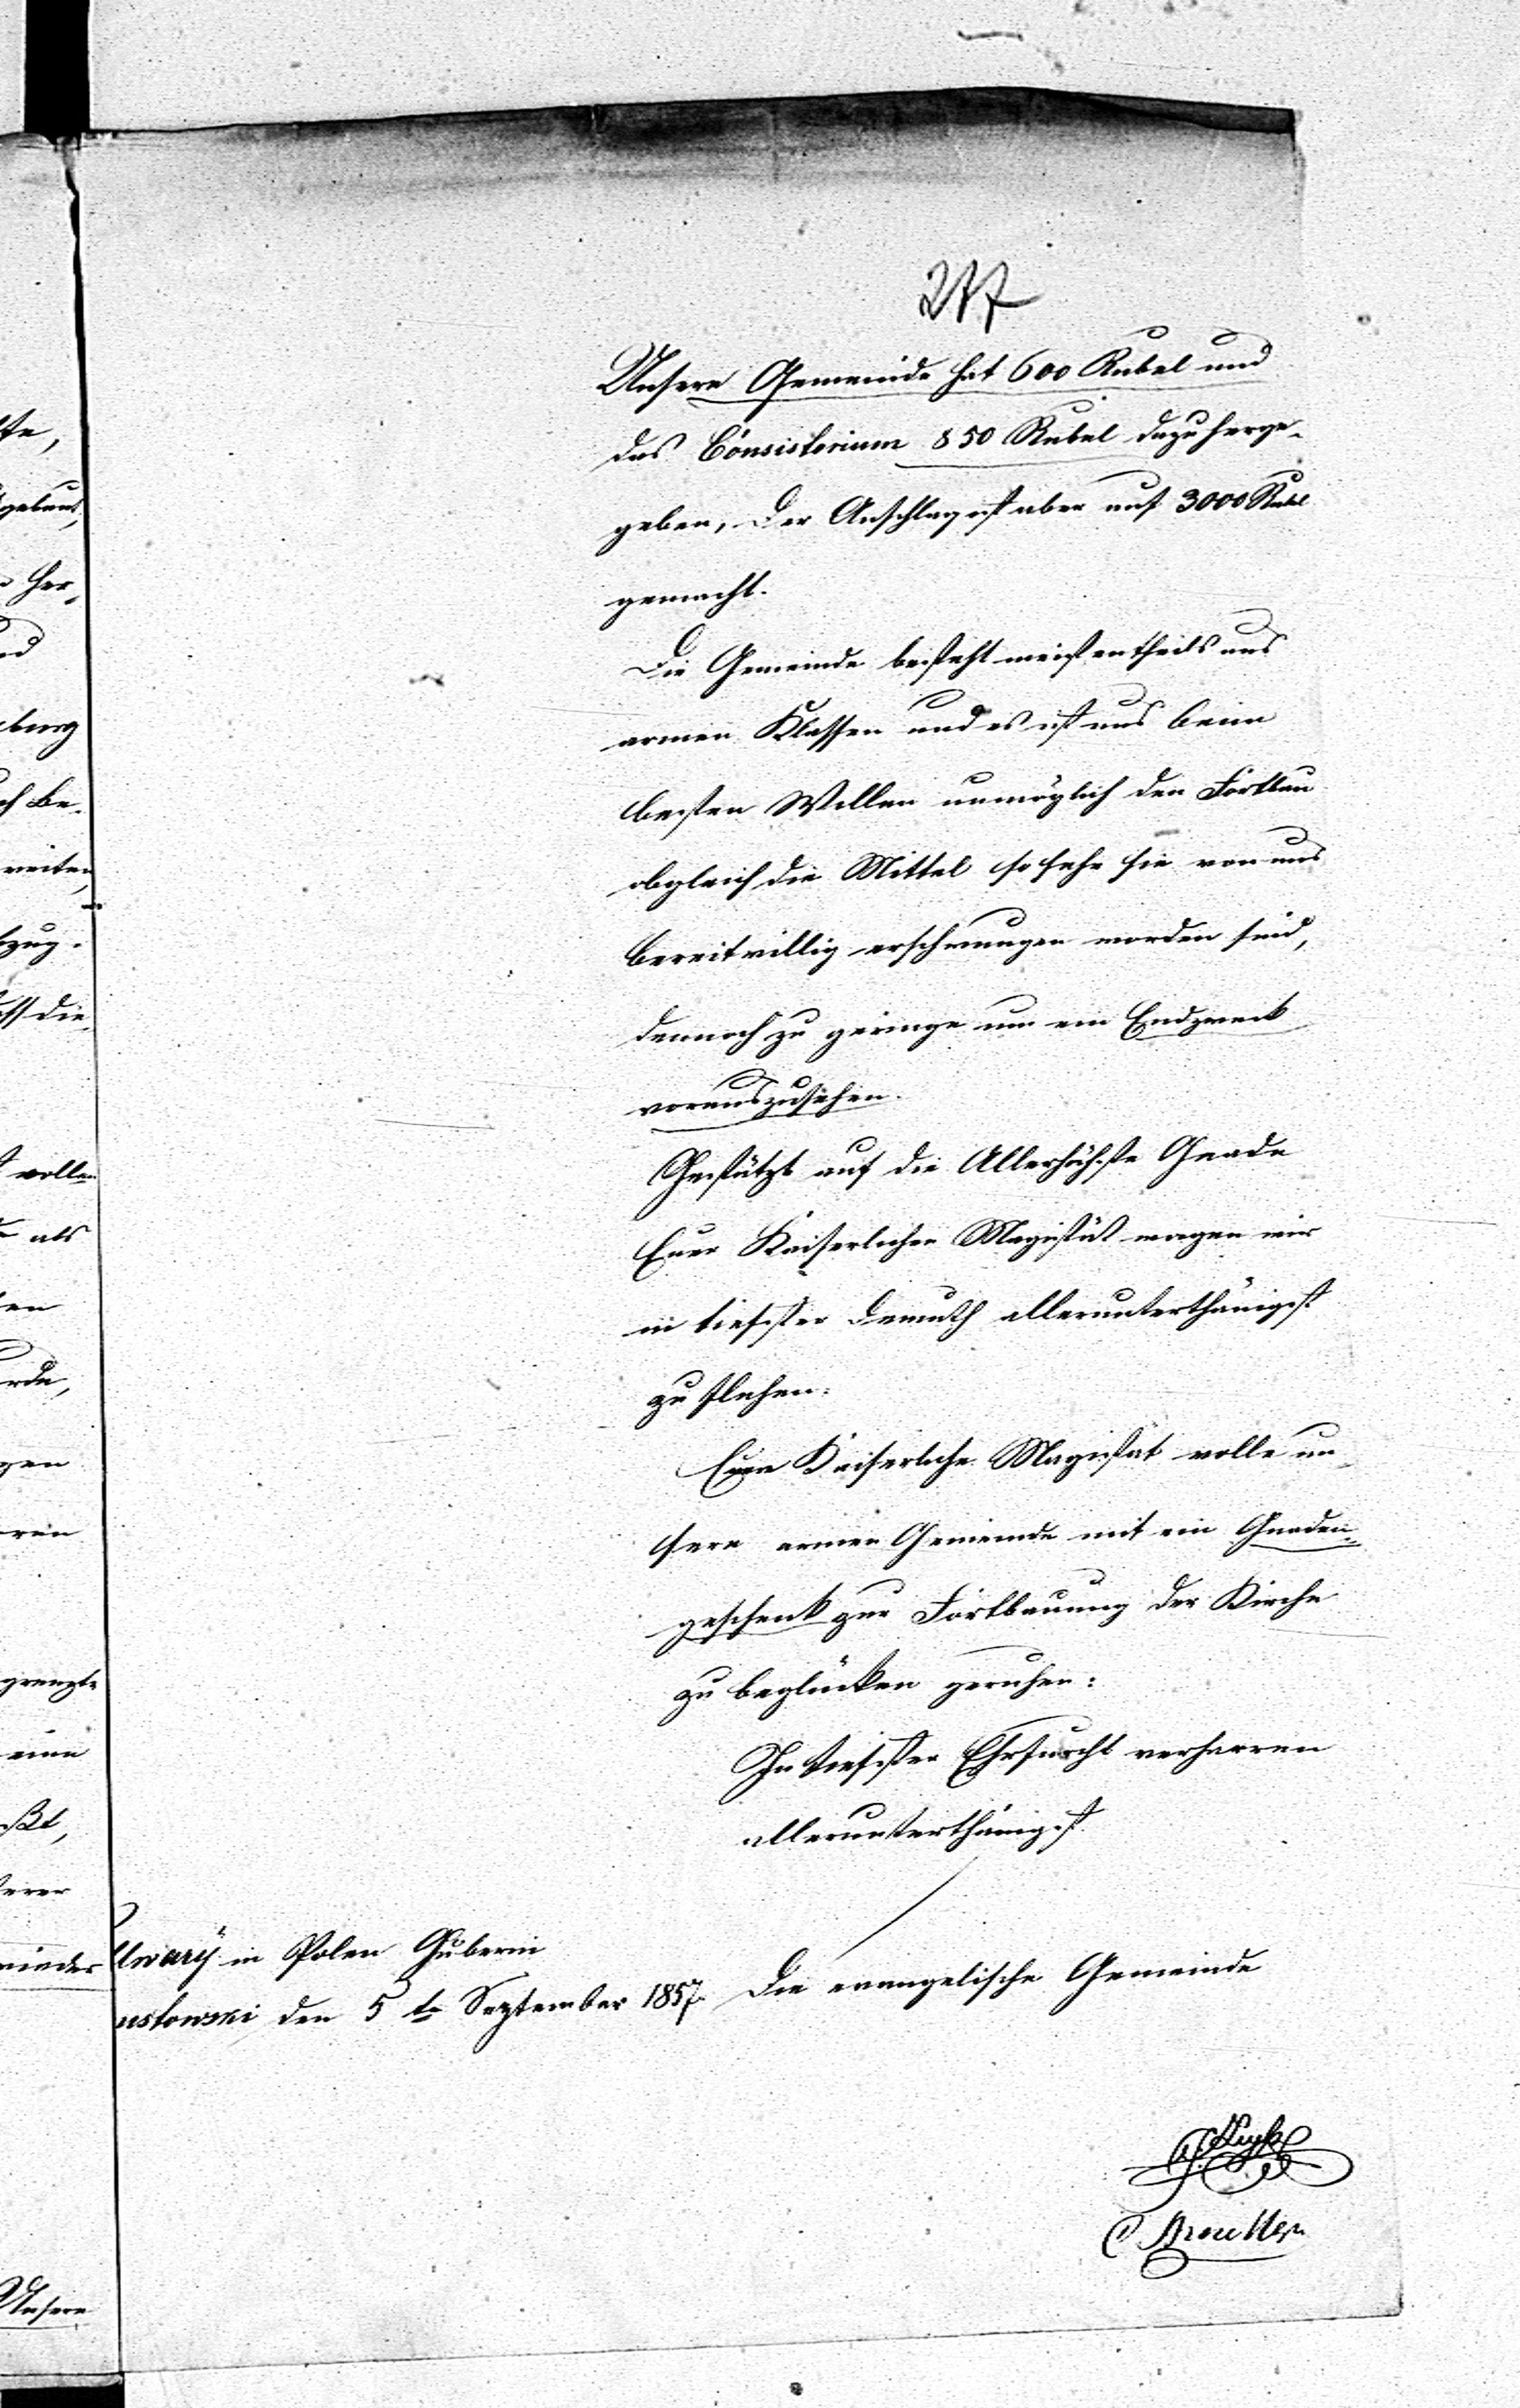 Unsere Gemeinde hat 600 Rubel und
das Consistorium 850 Rubel dazu herge-
geben, der Anschlag ist aber auf 3000 Rubel
gemacht.
Die Gemeinde besteht meistentheils aus
armen Klassen und es ist uns beim
besten Willen unmöglich den Fortbau
obgleich die Mittel so sehr sie von uns
bereitwillig erschwungen worden sind,
dennoch zu geringe um ein Endzweck
vorauszusehen.
Gestützt auf die Allerhöchste Gnade
Euer Kaiserlichen Magistät wagen wir
in tiefster Demuth allerunterthänigst
zu flehen:
Eure Kaiserliche Magistät wolle un-
sere armen Gemeinde mit ein Gnaden-
geschenk zur Fortbauung der Kirche
zu beglücken geruhen:
In tiefster Ehrfurcht verharren
allerunterthänigst
llwarÿ in Polen Guberni
ustowski den 5 te September 1857. Die evangelische Gemeinde
Unsere